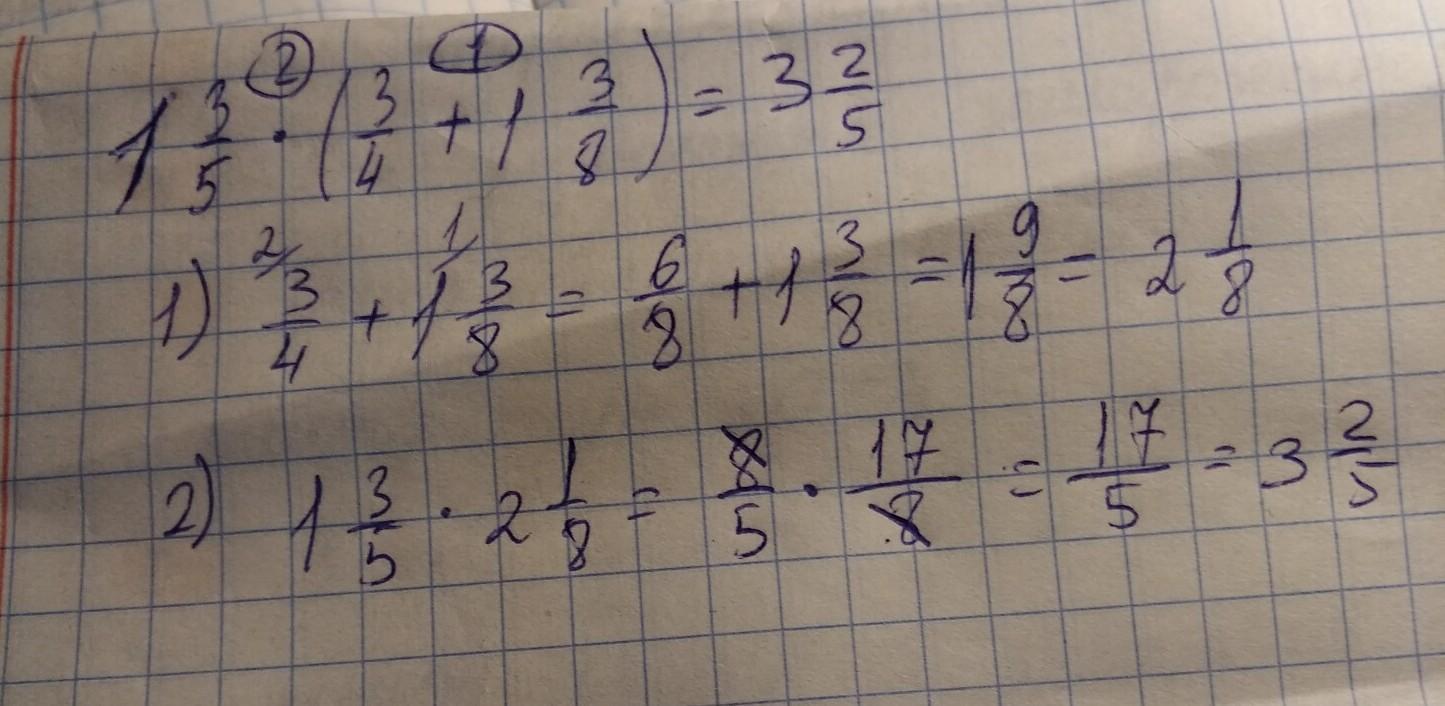 1 3/5 ② · ( 3/4 + ① 1 3/8 ) = 3 2/5
1) 2/ 3/4 + 1/ 1 3/8 = 6/8 + 1 3/8 = 1 9/8 = 2 1/8
2) 1 3/5 · 2 1/8 = 8/5 · 17/8 = 17/5 = 3 2/5